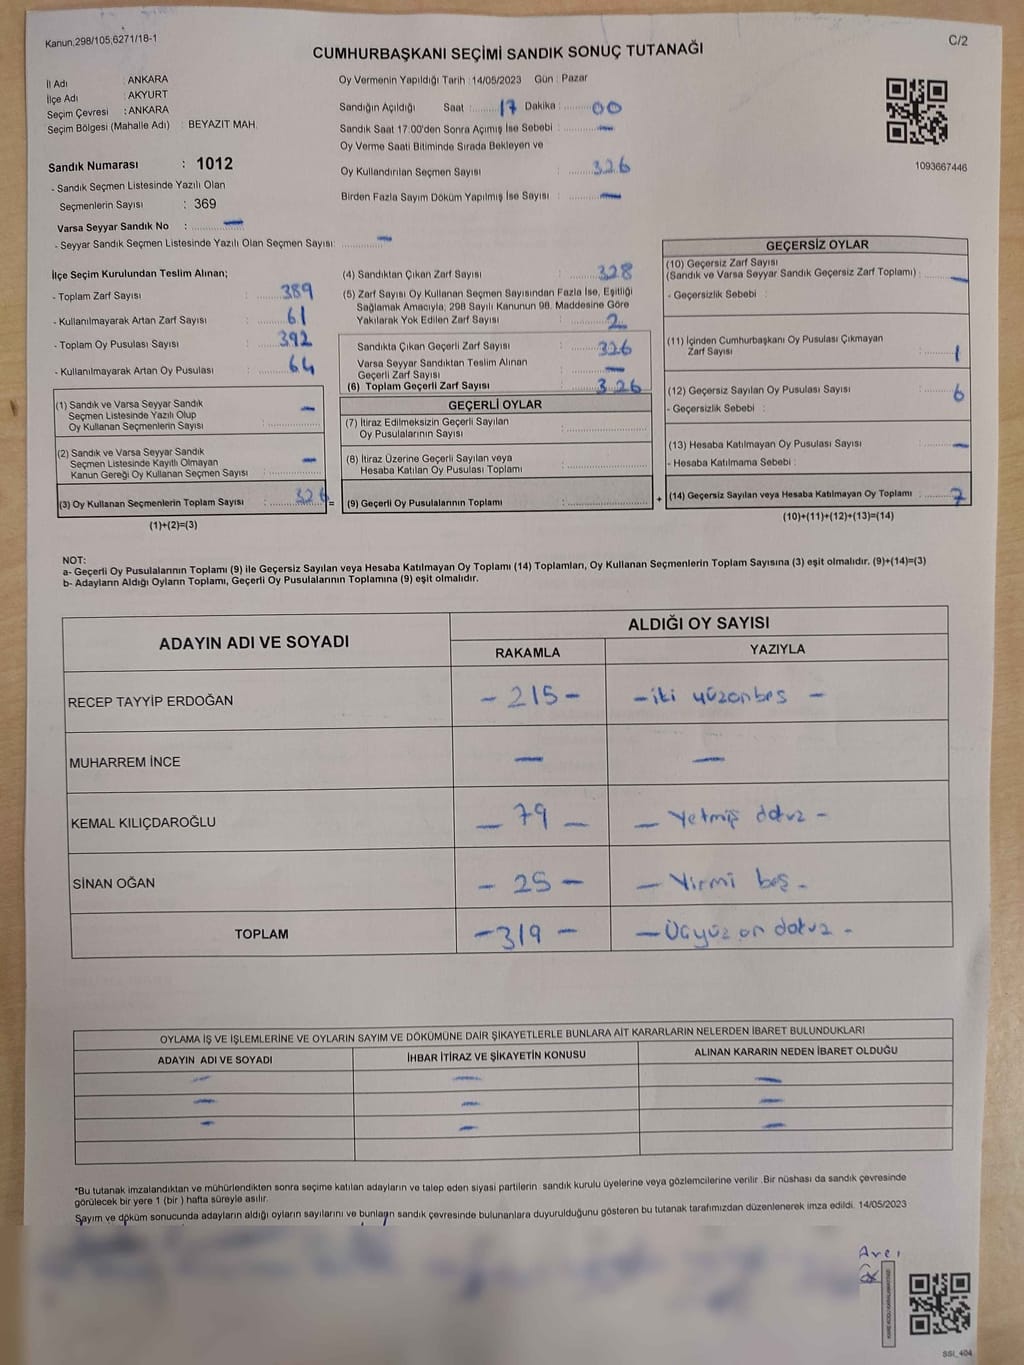 Kanun,298/105,6271/18-1
C/2
CUMHURBAŞKANI SEÇİMİ SANDIK SONUÇ TUTANAĞI
İl Adı : ANKARA
İlçe Adı : AKYURT
Seçim Çevresi : ANKARA
Seçim Bölgesi (Mahalle Adı) : BEYAZIT MAH.
Oy Vermenin Yapıldığı Tarih : 14/05/2023 Gün : Pazar
Sandığın Açıldığı Saat : 17 Dakika : 00
Sandık Saat 17.00'den Sonra Açımış İse Sebebi : —
Oy Verme Saati Bitiminde Sırada Bekleyen ve
Oy Kullandırılan Seçmen Sayısı : 326
Birden Fazla Sayım Döküm Yapılmış İse Sayısı : —
1093667446
Sandık Numarası : 1012
- Sandık Seçmen Listesinde Yazılı Olan
Seçmenlerin Sayısı : 369
Varsa Seyyar Sandık No : —
- Seyyar Sandık Seçmen Listesinde Yazılı Olan Seçmen Sayısı: —
İlçe Seçim Kurulundan Teslim Alınan;
- Toplam Zarf Sayısı : 389
- Kullanılmayarak Artan Zarf Sayısı : 61
- Toplam Oy Pusulası Sayısı : 392
- Kullanılmayarak Artan Oy Pusulası : 64
(1) Sandık ve Varsa Seyyar Sandık
Seçmen Listesinde Yazılı Olup
Oy Kullanan Seçmenlerin Sayısı : —
(2) Sandık ve Varsa Seyyar Sandık
Seçmen Listesinde Kayıtlı Olmayan
Kanun Gereği Oy Kullanan Seçmen Sayısı : —
(3) Oy Kullanan Seçmenlerin Toplam Sayısı : 326 =
(1)+(2)=(3)
(4) Sandıktan Çıkan Zarf Sayısı : 328
(5) Zarf Sayısı Oy Kullanan Seçmen Sayısından Fazla İse, Eşitliği
Sağlamak Amacıyla; 298 Sayılı Kanunun 98. Maddesine Göre
Yakılarak Yok Edilen Zarf Sayısı : 2
Sandıkta Çıkan Geçerli Zarf Sayısı : 326
Varsa Seyyar Sandıktan Teslim Alınan
Geçerli Zarf Sayısı : —
(6) Toplam Geçerli Zarf Sayısı : 326
GEÇERLİ OYLAR
(7) İtiraz Edilmeksizin Geçerli Sayılan
Oy Pusulalarının Sayısı :
(8) İtiraz Üzerine Geçerli Sayılan veya
Hesaba Katılan Oy Pusulası Toplamı :
(9) Geçerli Oy Pusulalarının Toplamı : +
GEÇERSİZ OYLAR
(10) Geçersiz Zarf Sayısı
(Sandık ve Varsa Seyyar Sandık Geçersiz Zarf Toplamı) : —
- Geçersizlik Sebebi :
(11) İçinden Cumhurbaşkanı Oy Pusulası Çıkmayan
Zarf Sayısı : 1
(12) Geçersiz Sayılan Oy Pusulası Sayısı : 6
- Geçersizlik Sebebi :
(13) Hesaba Katılmayan Oy Pusulası Sayısı : —
- Hesaba Katılmama Sebebi :
(14) Geçersiz Sayılan veya Hesaba Katılmayan Oy Toplamı : 7
(10)+(11)+(12)+(13)=(14)
NOT:
a- Geçerli Oy Pusulalarının Toplamı (9) ile Geçersiz Sayılan veya Hesaba Katılmayan Oy Toplamı (14) Toplamları, Oy Kullanan Seçmenlerin Toplam Sayısına (3) eşit olmalıdır. (9)+(14)=(3)
b- Adayların Aldığı Oyların Toplamı, Geçerli Oy Pusulalarının Toplamına (9) eşit olmalıdır.
ADAYIN ADI VE SOYADI
ALDIĞI OY SAYISI
RAKAMLA YAZIYLA
RECEP TAYYİP ERDOĞAN - 215 - - iki yüzonbeş -
MUHARREM İNCE — —
KEMAL KILIÇDAROĞLU - 79 - - Yetmiş dokuz -
SİNAN OĞAN - 25 - - Yirmi beş -
TOPLAM - 319 - - Üçyüz on dokuz -
OYLAMA İŞ VE İŞLEMLERİNE VE OYLARIN SAYIM VE DÖKÜMÜNE DAİR ŞİKAYETLERLE BUNLARA AİT KARARLARIN NELERDEN İBARET BULUNDUKLARI
ADAYIN ADI VE SOYADI İHBAR İTİRAZ VE ŞİKAYETİN KONUSU ALINAN KARARIN NEDEN İBARET OLDUĞU
— — —
— — —
— — —
*Bu tutanak imzalandıktan ve mühürlendikten sonra seçime katılan adayların ve talep eden siyasi partilerin sandık kurulu üyelerine veya gözlemcilerine verilir .Bir nüshası da sandık çevresinde
görülecek bir yere 1 (bir ) hafta süreyle asılır.
Sayım ve döküm sonucunda adayların aldığı oyların sayılarını ve bunların sandık çevresinde bulunanlara duyurulduğunu gösteren bu tutanak tarafımızdan düzenlenerek imza edildi. 14/05/2023
SSI_404